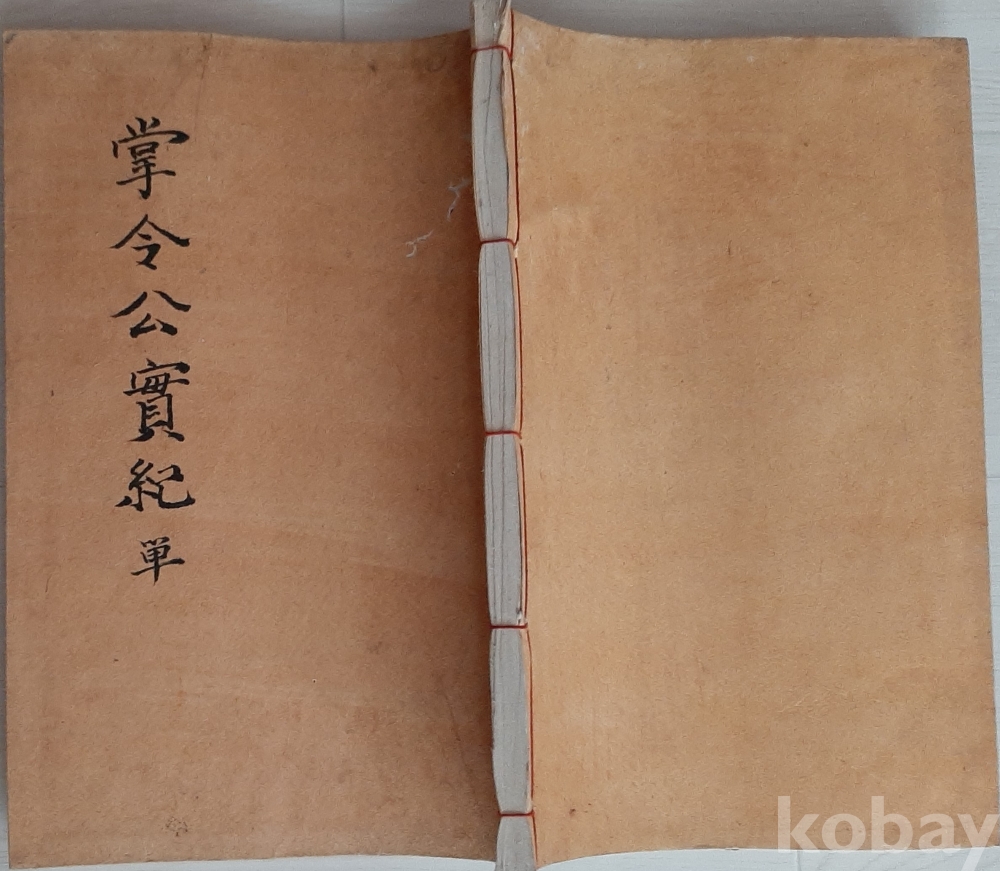 掌令公實紀 単
kobay